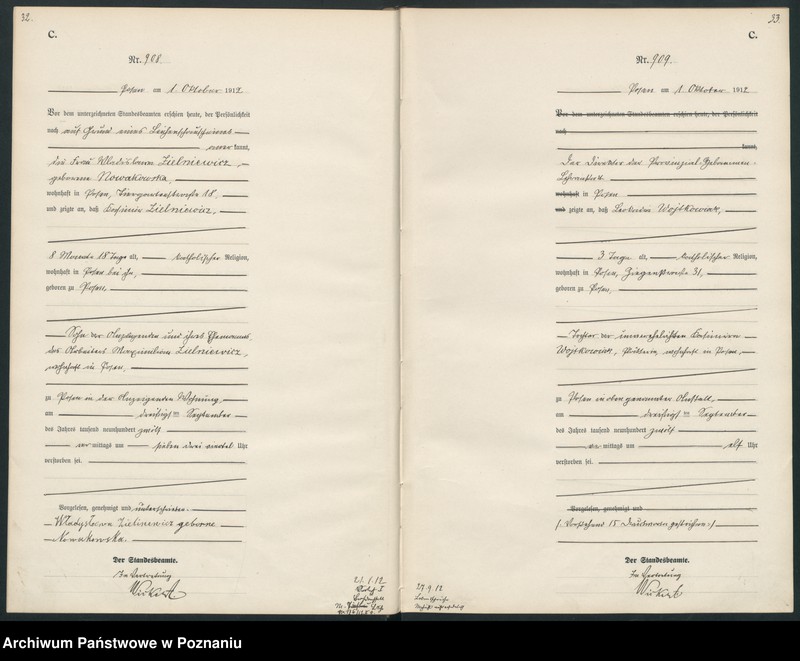 32.
C.
Nr. 908.
Posen am 1. Oktober 1912
Vor dem unterzeichneten Standesbeamten erschien heute, der Persönlichkeit
nach auf Grund eines
kannt,
die Frau Wladislawa Zielniewicz,
geborene Nowakowska,
wohnhaft in Posen, Tiergartenstraße 18,
und zeigte an, daß Casimir Zielniewicz,
8 Monate 18 Tage alt, katholischer Religion,
wohnhaft in Posen bei ihr,
geboren zu Posen,
Sohn der Anzeigenden und ihres Ehemannes
des Arbeiters Maximilian Zielniewicz,
wohnhaft in Posen,
zu Posen in der Anzeigenden Wohnung,
am dreißigsten September
des Jahres tausend neunhundert zwölf
vormittags um sieben drei viertel Uhr
verstorben sei.
Vorgelesen, genehmigt und unterschrieben.
Władysława Zielniewicz geborne
Nowakowska.
Der Standesbeamte.
In Vertretung
21.1.12
33.
C.
Nr. 909.
Posen am 1. Oktober 1912
Vor dem unterzeichneten Standesbeamten erschien heute, der Persönlichkeit
nach
kannt,
Der Direktor der Provinzial-Hebammen-
Lehranstalt
wohnhaft in Posen
und zeigte an, daß Leokadia Wojtkowiak,
3 Tage alt, katholischer Religion,
wohnhaft in Posen, Ziegenstraße 31,
geboren zu Posen,
Tochter der unverehelichten Casimira
Wojtkowiak, wohnhaft in Posen,
zu Posen in oben genannter Anstalt,
am dreißigsten September
des Jahres tausend neunhundert zwölf
mittags um elf Uhr
verstorben sei.
Vorgelesen, genehmigt und
(Vorstehend 15 Druckworte gestrichen.)
Der Standesbeamte.
In Vertretung
27.9.12
Archiwum Państwowe w Poznaniu